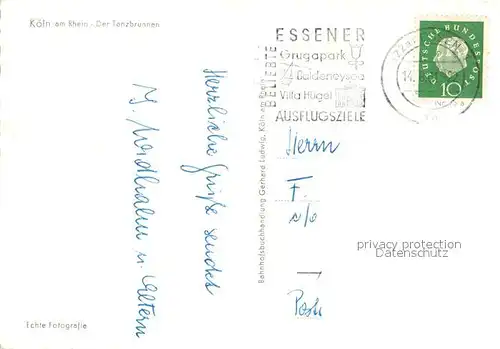 Köln am Rhein - Der Tanzbrunnen
Herzliche Grüße sendet
J. Nordhalm u. Eltern
Echte Fotografie
Bahnhofsbuchhandlung Gerhard Ludwig, Köln am Rhein
BELIEBTE
ESSENER
Grugapark
Baldeneysee
Villa Hügel
AUSFLUGSZIELE
DEUTSCHE BUNDESPOST
10
Herrn
F.
privacy protection
Datenschutz